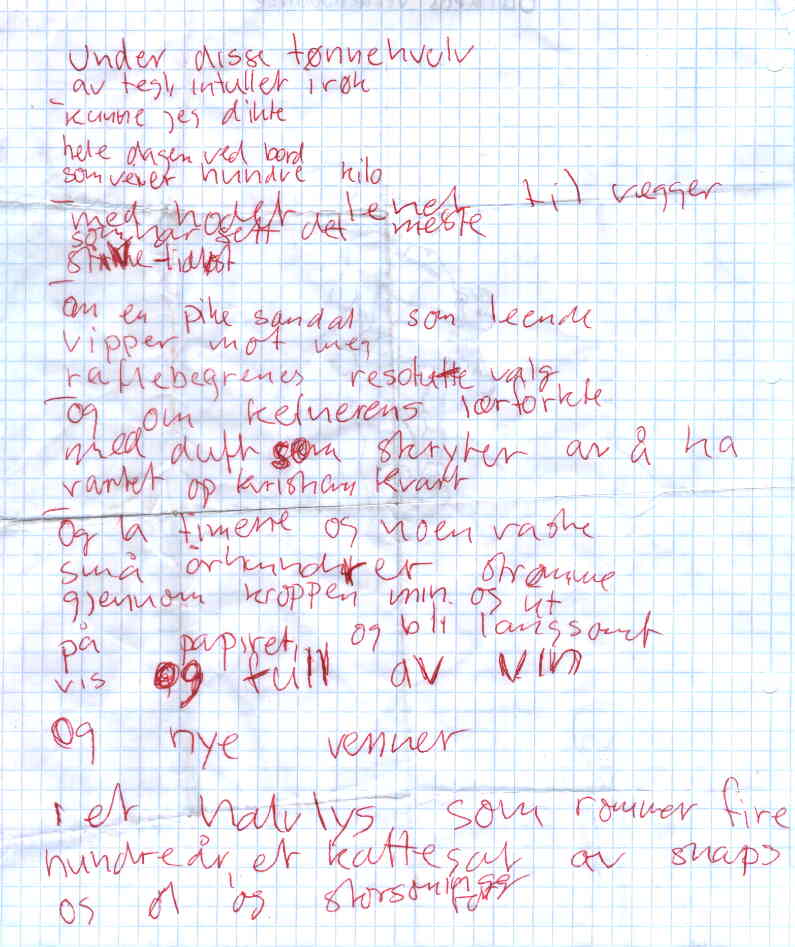 Under disse tønnehvelv
av tegl, intullet i røk
kunne jeg dikte
hele dagen ved bord
som veier hundre kilo
med hodet lenet til vegger
som har sett det meste
om en pike sandal som leende
vipper mot meg
raflebegrenes resolutte valg
og om kelnerens lørforkle
med duft som skryter av å ha
vartet op kristian kvart
og la timene og noen raske
små århundrer strømme
gjennom kroppen min og ut
på papiret, og bli langsomt
vis og full av vin
og nye venner
i et halvlys som rommer fire
hundre år, et kattesal av snaps
og øl og